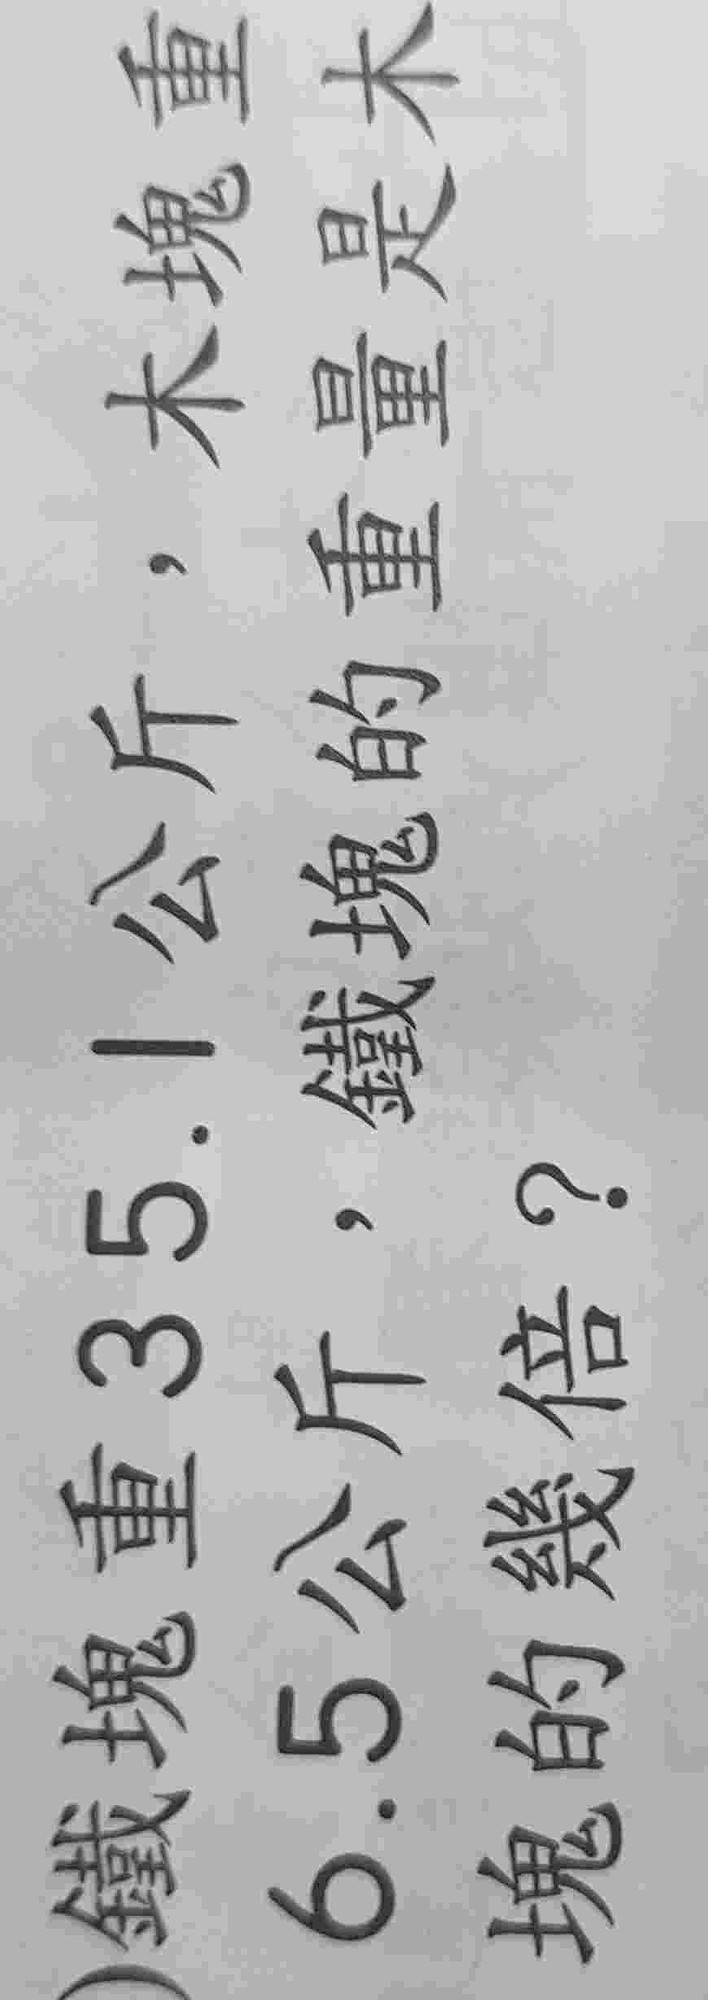 )鐵塊重35.1公斤，木塊重
6.5公斤，鐵塊的重量是木
塊的幾倍？